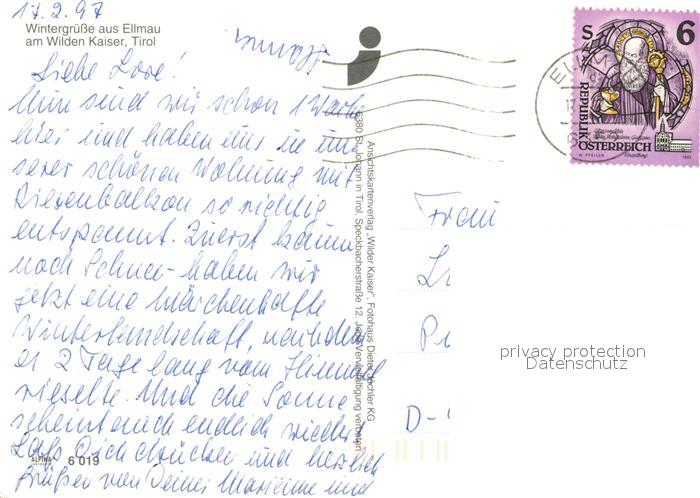 17.2.97
Wintergrüße aus Ellmau
am Wilden Kaiser, Tirol
Liebe Lore!
Nun sind wir schon 1 Woche
hier und haben uns in un-
serer schönen Wohnung mit
Riesenbalkon so richtig
entspannt. Zuerst kaum
noch Schnee - haben wir
jetzt eine märchenhafte
Winterlandschaft, nachdem
es 2 Tage lang vom Himmel
rieselte. Und die Sonne
scheint auch endlich wieder.
Lass Dich drücken und herzlich
grüßen von Deiner Marianne und
ALPINA
6 019
Ansichtskartenverlag „Wilder Kaiser“, Fotohaus Dieter
KG
6380 St. Johann in Tirol, Speckbacherstraße 12, Jede Vervielfältigung verboten
S 6
REPUBLIK
ÖSTERREICH
W. PFEILER
1993
Frau
D-
privacy protection
Datenschutz